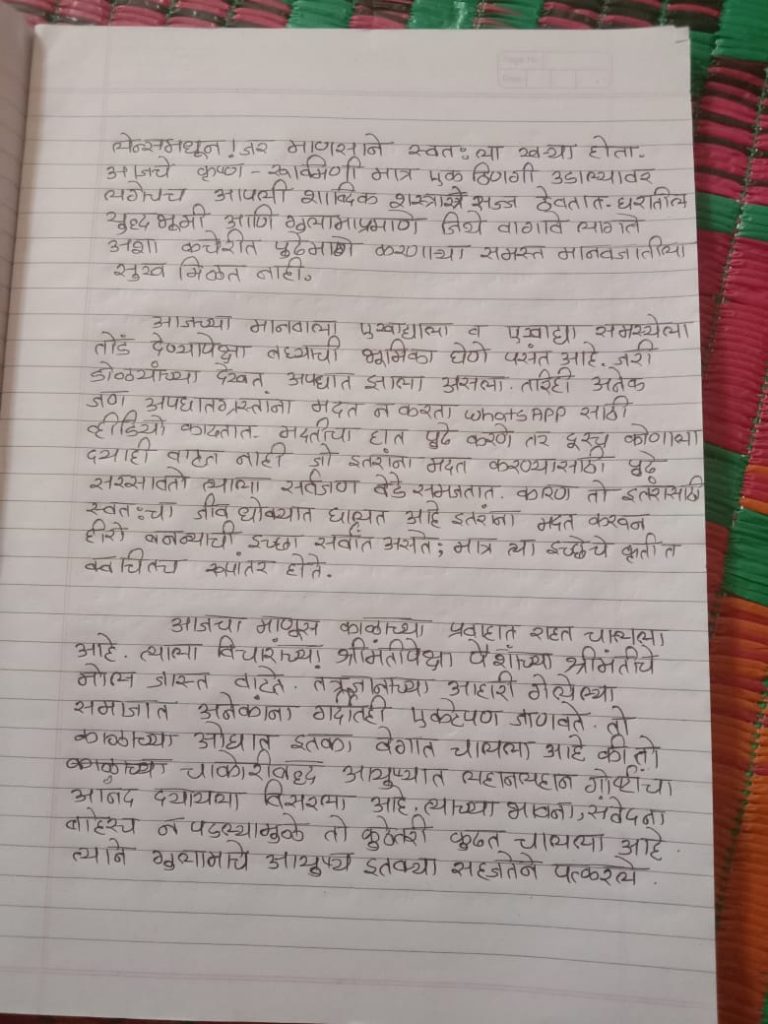 Page No.
Date
लेन्समधून! जर माणसाने स्वतःला खर्‍या होता.
आजचे कृष्ण - रुक्मिणी मात्र एक ठिणगी उडाल्यावर
लगेचच आपली शाब्दिक शस्त्रास्त्रे सज्ज ठेवतात. घरातील
युद्धभूमी आणि गुलामाप्रमाणे जिथे वागावे लागते
अशा कचेरीत पुढेमागे करणाऱ्या समस्त मानवजातीला
सुख मिळत नाही.
आजच्या मानवाला एखाद्याला व एखाद्या समस्येला
तोंड देण्यापेक्षा बघ्याची भूमिका घेणे पसंत आहे. जरी
डोळ्यांच्या देखत अपघात झाला असला. तरिही अनेक
जण अपघातग्रस्तांना मदत न करता WhatsAPP साठी
व्हीडियो काढतात. मदतीचा हात पुढे करणे तर दूरच कोणाला
दयाही वाटत नाही जो इतरांना मदत करण्यासाठी पुढे
सरसावतो त्याला सर्वजण वेडे समजतात. कारण तो इतरांसाठी
स्वतःचा जीव धोक्यात घालत आहे इतरांना मदत करून
हीरो बनन्याची इच्छा सर्वांत असते; मात्र त्या इच्छेचे कृतीत
क्वचितच रूपांतर होते.
आजचा माणूस काळाच्या प्रवाहात वाहत चालला
आहे. त्याला विचारांच्या श्रीमंतीपेक्षा पैशांच्या श्रीमंतीचे
मोल जास्त वाटते. तंत्रज्ञानाच्या आहारी गेलेल्या
समाजात अनेकांना गर्दीतही एकटेपण जाणवते. तो
काळाच्या ओघात इतका वेगात चालला आहे की तो
काळाच्या चाकोरीबद्ध आयुष्यात लहानलहान गोष्टींचा
आनंद द्यायला विसरला आहे. त्याच्या भावना, संवेदना
बाहेरच न पडल्यामुळे तो कुठेतरी कुढत चालला आहे.
त्याने गुलामाचे आयुष्य इतक्या सहजतेने पत्करले.